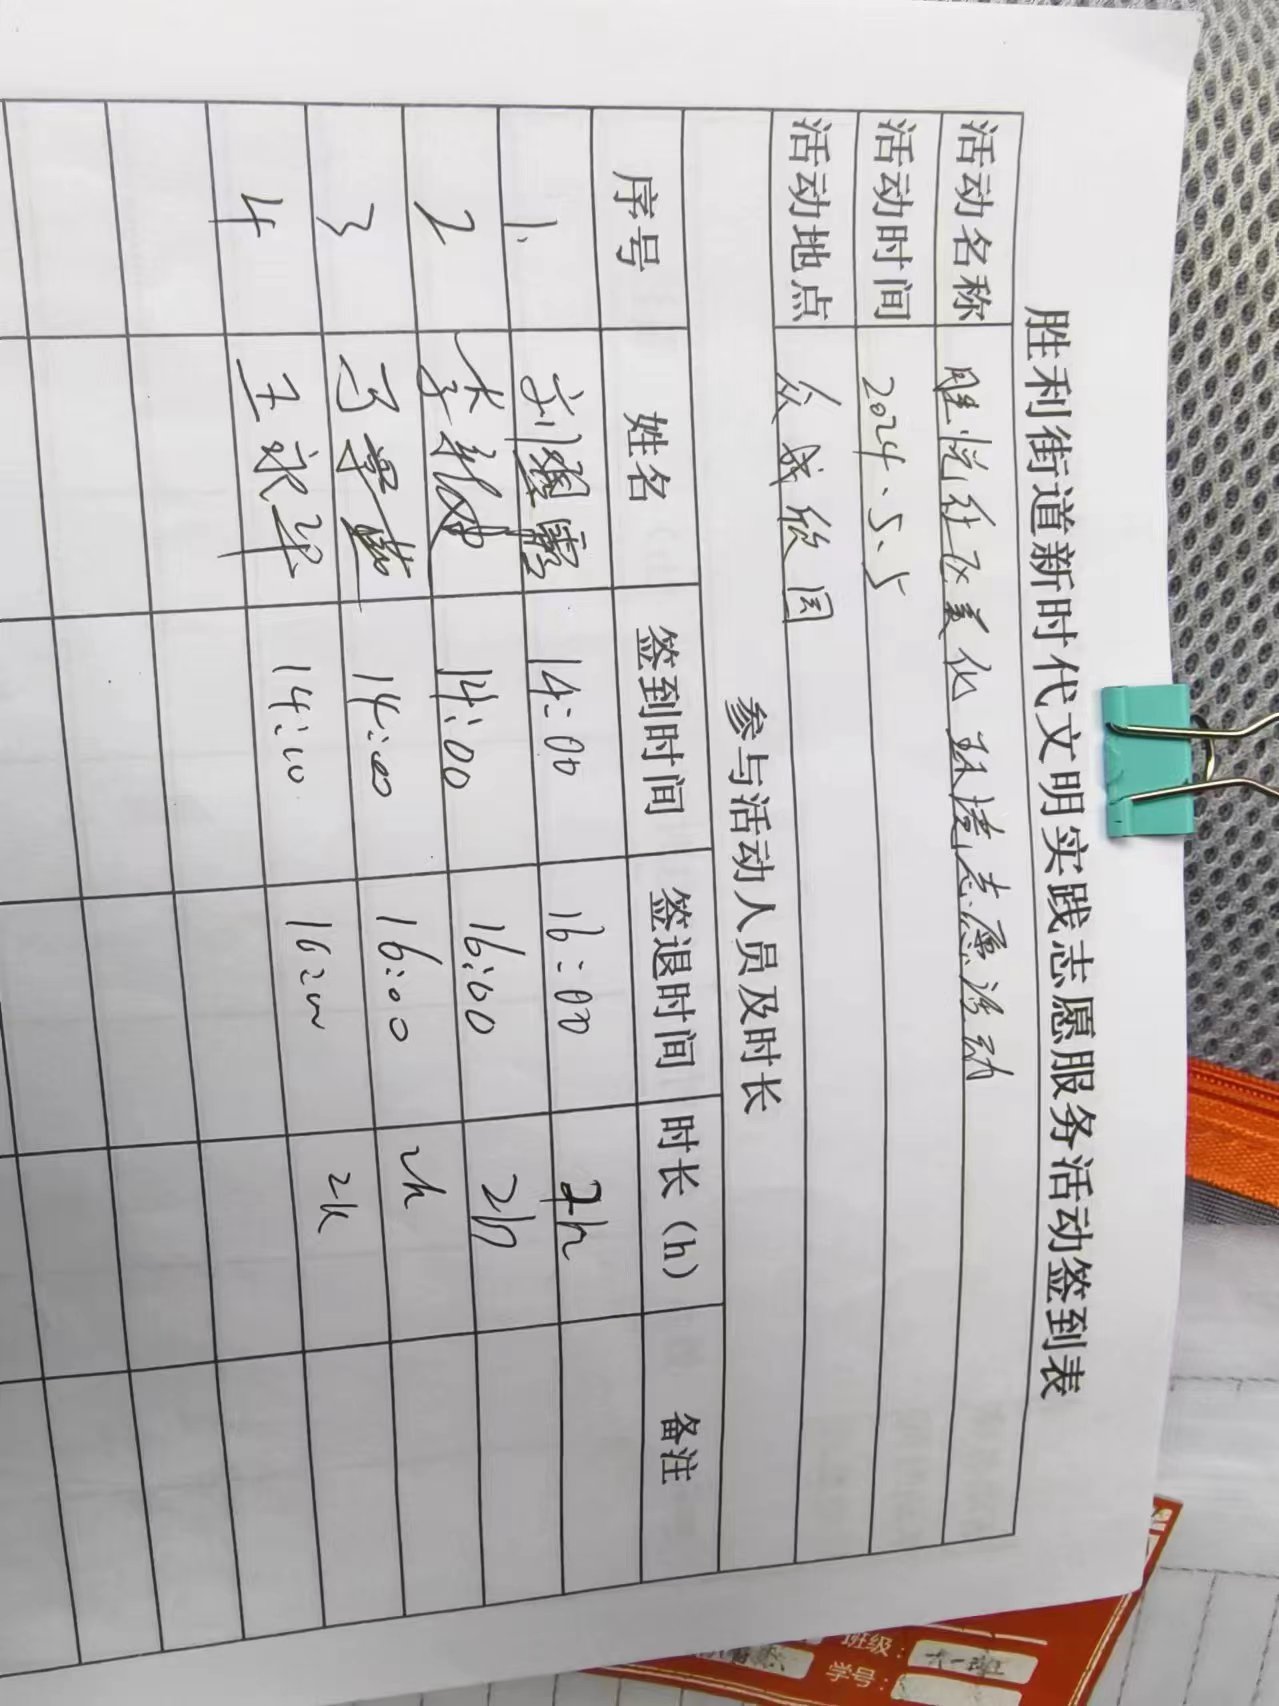 胜利街道新时代文明实践志愿服务活动签到表
活动名称 胜悦社区美化环境志愿活动
活动时间 2024.5.5
活动地点 众成欣园
参与活动人员及时长
序号 姓名 签到时间 签退时间 时长（h） 备注
1. 刘 14:00 16:00 2h
2 李 14:00 16:00 2h
3 14:00 16:00 2h
4 王永华 14:00 16:00 2h
班级： 六一班
学号：